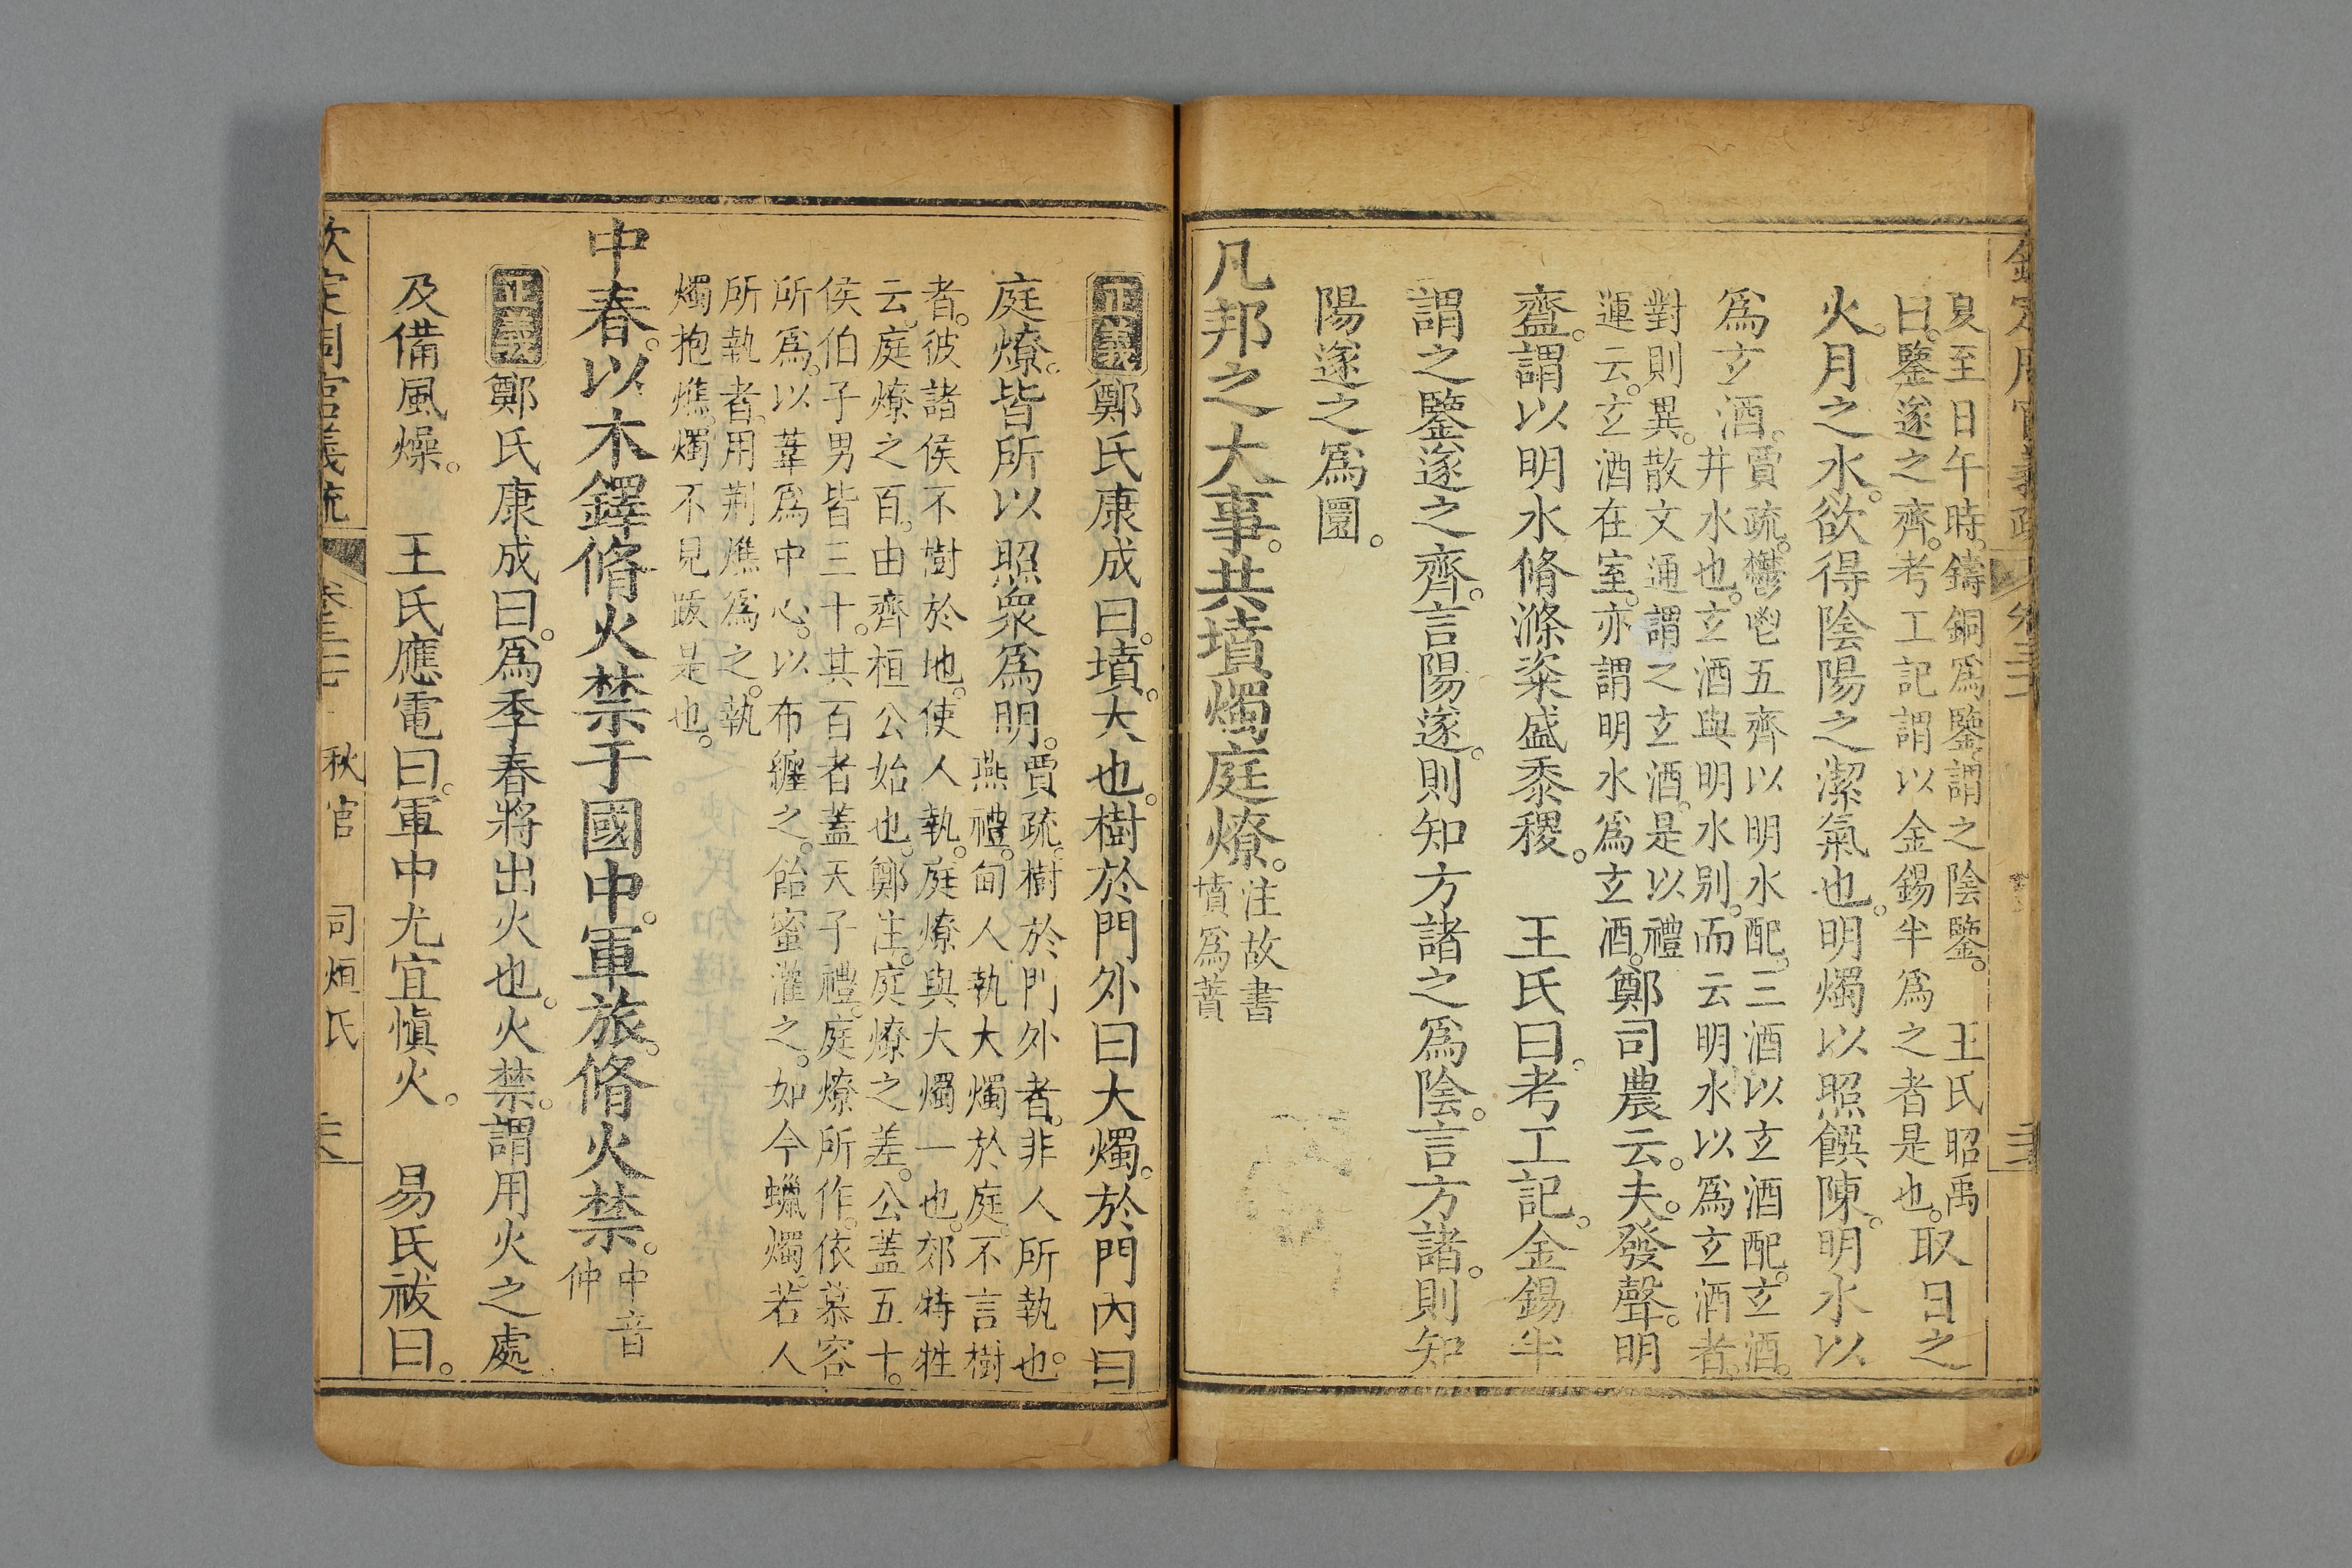 夏至日午時鑄銅爲鑒謂之陰鑒。 王氏昭禹
曰。鑒遂之齊。考工記謂以金錫半爲之者是也。取日之
火。月之水。欲得陰陽之潔氣也。明燭以照饌陳。明水以
爲玄酒。賈疏。鬱鬯五齊以明水配。三酒以玄酒配。玄酒。
井水也。玄酒與明水別。而云明水以爲玄酒者。
對則異。散文通謂之玄酒。是以禮
運云。玄酒在室。亦謂明水爲玄酒。鄭司農云。夫。發聲。明
齍。謂以明水脩滌粢盛黍稷。 王氏曰。考工記。金錫半
謂之鑒遂之齊。言陽遂。則知方諸之爲陰。言方諸。則知
陽遂之爲圜。
凡邦之大事。共墳燭庭燎。注故書
墳爲蕡
正義鄭氏康成曰。墳。大也。樹於門外曰大燭。於門內曰
庭燎。皆所以照衆爲明。賈疏。樹於門外者。非人所執也。
燕禮。甸人執大燭於庭。不言樹
者。彼諸侯不樹於地。使人執。庭燎與大燭一也。郊特牲
云。庭燎之百。由齊桓公始也。鄭注。庭燎之差。公蓋五十。
侯伯子男皆三十。其百者。蓋天子禮。庭燎所作。依慕容
所爲。以葦爲中心。以布纏之。飴蜜灌之。如今蠟燭。若人
所執者。用荆燋爲之。執
燭抱燋。燭不見跋是也。
中春。以木鐸脩火禁于國中。軍旅。脩火禁。中音
仲
正義鄭氏康成曰。爲季春將出火也。火禁。謂用火之處
及備風燥。 王氏應電曰。軍中尤宜愼火。 易氏祓曰。
欽定周官義疏 卷三十七 秋官 司烜氏